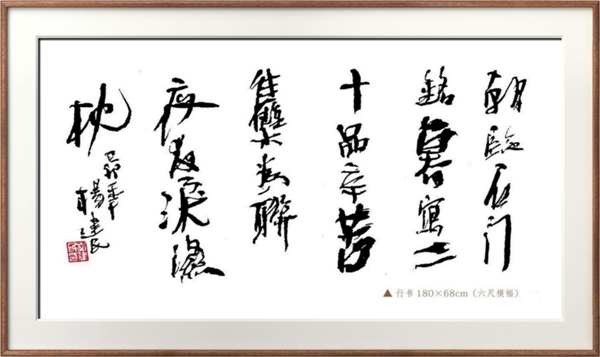 朝臨石门
銘暮寫二
十品辛苦
集為聯
夜夜淚濕
枕
楊建民
▲ 行书 180×68cm（六尺横幅）